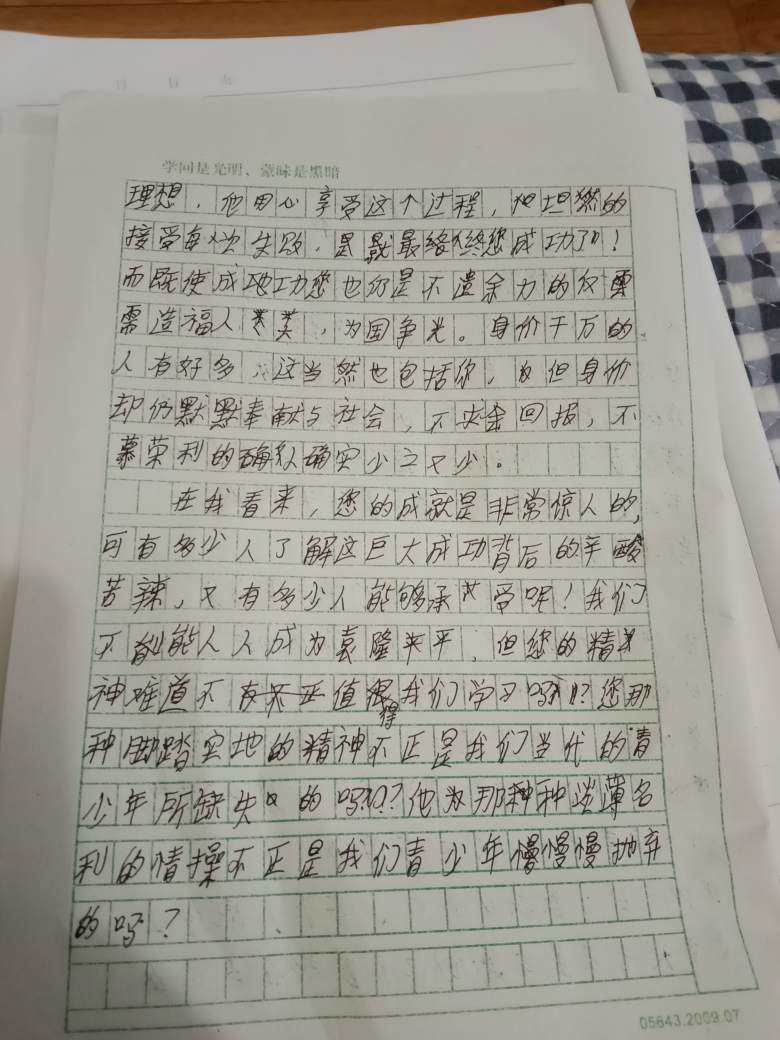 学问是光明、蒙昧是黑暗
理想，他用心享受这个过程，他坦然的
接受每次失败，最终您成功了！
而既使成功您也仍是不遗余力的仅
需造福人类，为国争光。身价千万的
人有好多，这当然也包括你，但身价
却仍默默奉献与社会，不求回报，不
慕荣利的确确实少之又少。
在我看来，您的成就是非常惊人的，
可有多少人了解这巨大成功背后的辛酸
苦辣，又有多少人能够承受呢！我们
不能人人成为袁隆平，但您的精
神难道不值得我们学习吗？您那
种脚踏实地的精神不正是我们当代的青
少年所缺失的吗？他那种淡薄名
利的情操不正是我们青少年慢慢慢抛弃
的吗？
05643.2009.07